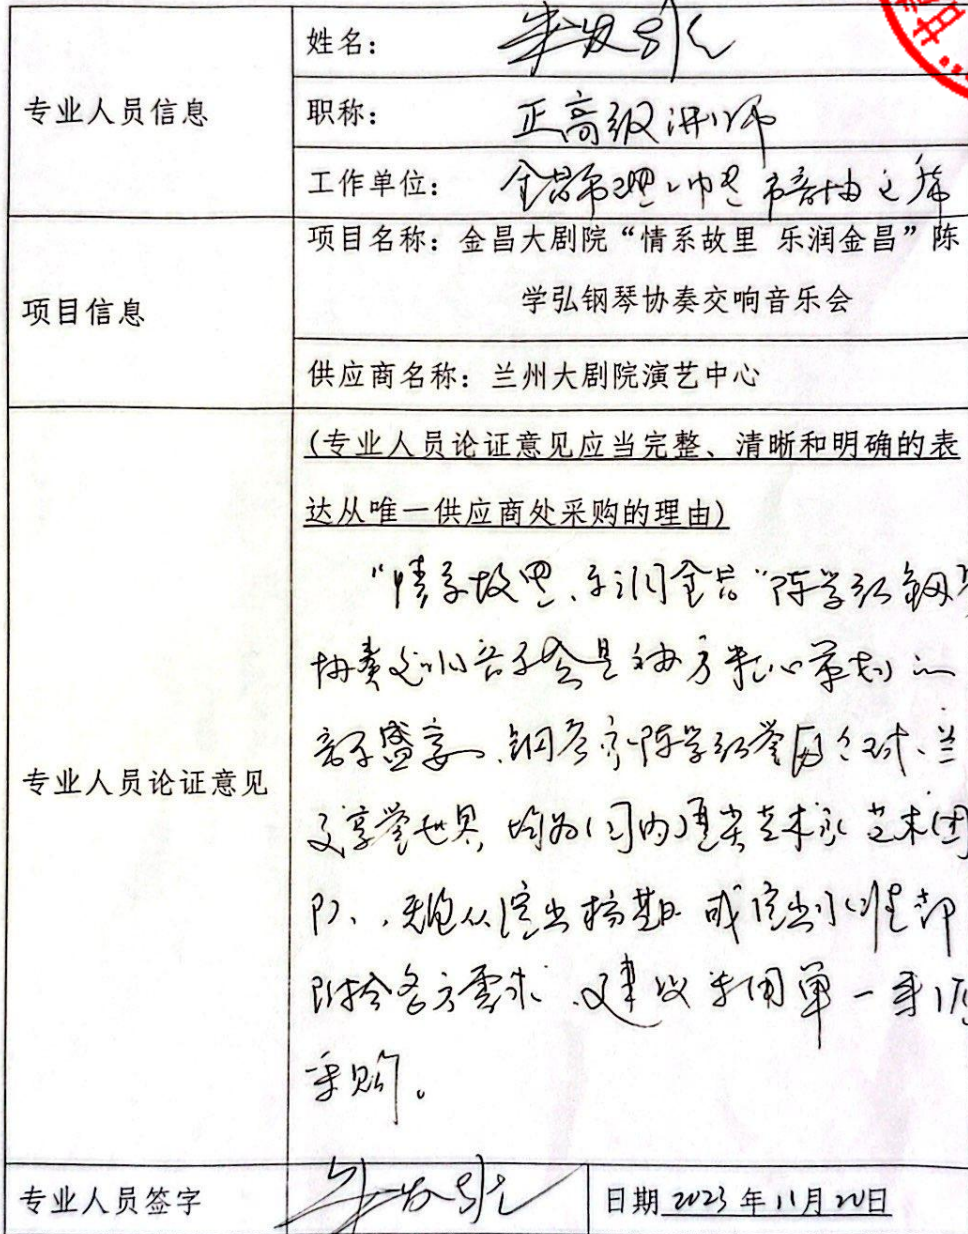 专业人员信息
姓名：
职称： 正高级讲师
工作单位： 金昌市理工中专 市音协主席
项目信息
项目名称：金昌大剧院“情系故里 乐润金昌”陈
学弘钢琴协奏交响音乐会
供应商名称：兰州大剧院演艺中心
专业人员论证意见
(专业人员论证意见应当完整、清晰和明确的表
达从唯一供应商处采购的理由)
“情系故里、乐润金昌”陈学弘钢琴
协奏交响音乐会是主办方精心策划的
音乐盛宴、钢琴家陈学弘誉满全球、兰
交享誉世界，均为国内顶尖艺术家 艺术团
队，无论从演出档期 或演出 性都
符合各方需求、建议采用单一来源
采购。
专业人员签字
日期 2023年11月20日